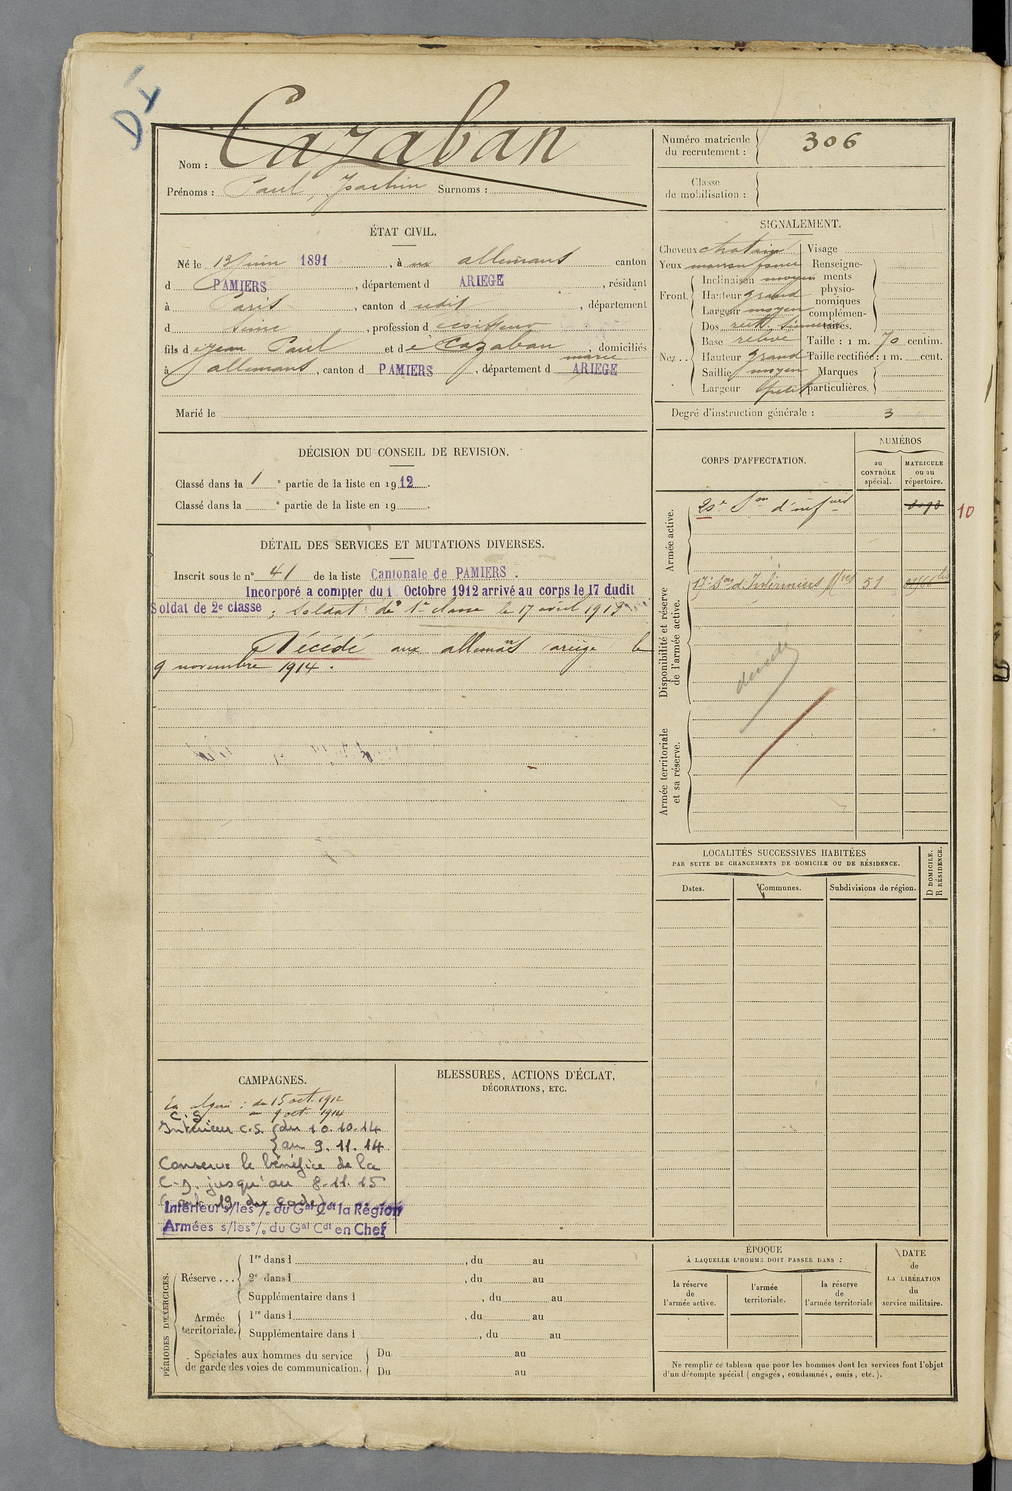 DX
Nom : Cazaban
Prénoms : Paul, Joachin Surnoms :
Numéro matricule
du recrutement : 306
Classe
de mobilisation :
ÉTAT CIVIL.
Né le 12 juin 1891, à allemans canton
d PAMIERS, département d ARIEGE, résidant
à Paris, canton d udit, département
d Seine, profession d
fils de Jean Paul et de Cazaban marie, domiciliés
à allemans, canton d PAMIERS, département d ARIEGE
Marié le
SIGNALEMENT.
Cheveux chatain
Yeux marron foncé
Front. Inclinaison moyen
Hauteur grand
Largeur moyen
Nez. Dos rect. sinueux
Base relevé
Hauteur grand
Saillie moyen
Largeur petit
Visage
Renseigne-
ments
physio-
nomiques
complémen-
taires.
Taille : 1 m. 70 centim.
Taille rectifiée : 1 m. cent.
Marques
particulières.
Degré d'instruction générale : 3
DÉCISION DU CONSEIL DE REVISION.
Classé dans la 1e partie de la liste en 1912.
Classé dans la e partie de la liste en 19
DÉTAIL DES SERVICES ET MUTATIONS DIVERSES.
Inscrit sous le n° 41 de la liste Cantonale de PAMIERS.
Incorporé a compter du 1 Octobre 1912 arrivé au corps le 17 dudit
Soldat de 2e classe ; Soldat de 1e classe le 17 avril 1913
Décédé aux allemans ariège le
9 novembre 1914.
CORPS D'AFFECTATION.
NUMÉROS
au
CONTRÔLE
spécial.
MATRICULE
ou au
répertoire.
Armée active.
20e Son d'inf
10
Disponibilité et réserve
de l'armée active.
17e Son d'Infirmiers 51
décédé
Armée territoriale
et sa réserve.
LOCALITÉS SUCCESSIVES HABITÉES
PAR SUITE DE CHANGEMENTS DE DOMICILE OU DE RÉSIDENCE.
Dates.
Communes.
Subdivisions de région.
D DOMICILE.
R RÉSIDENCE.
CAMPAGNES.
En Algérie : du 15 oct. 1912
C. S. au 9 oct. 1914
Intérieur C.S. du 10.10.14
au 9.11.14
Conserve le bénéfice de la
C-S. jusqu'au 8.11.15
(art. 19 du code)
Intérieur s/les °/. du Gal Cdt la Région
Armées s/les °/. du Gal Cdt en Chef
BLESSURES, ACTIONS D'ÉCLAT,
DÉCORATIONS, ETC.
PÉRIODES D'EXERCICES.
Réserve...
1re dans l , du au
2e dans l , du au
Supplémentaire dans l , du au
Armée
territoriale.
1re dans l , du au
Supplémentaire dans l , du au
Spéciales aux hommes du service
de garde des voies de communication.
Du au
Du au
ÉPOQUE
À LAQUELLE L'HOMME DOIT PASSER DANS :
la réserve
de
l'armée active.
l'armée
territoriale.
la réserve
de
l'armée territoriale
DATE
de
LA LIBÉRATION
du
service militaire.
Ne remplir ce tableau que pour les hommes dont les services font l'objet
d'un décompte spécial (engagés, condamnés, omis, etc.).